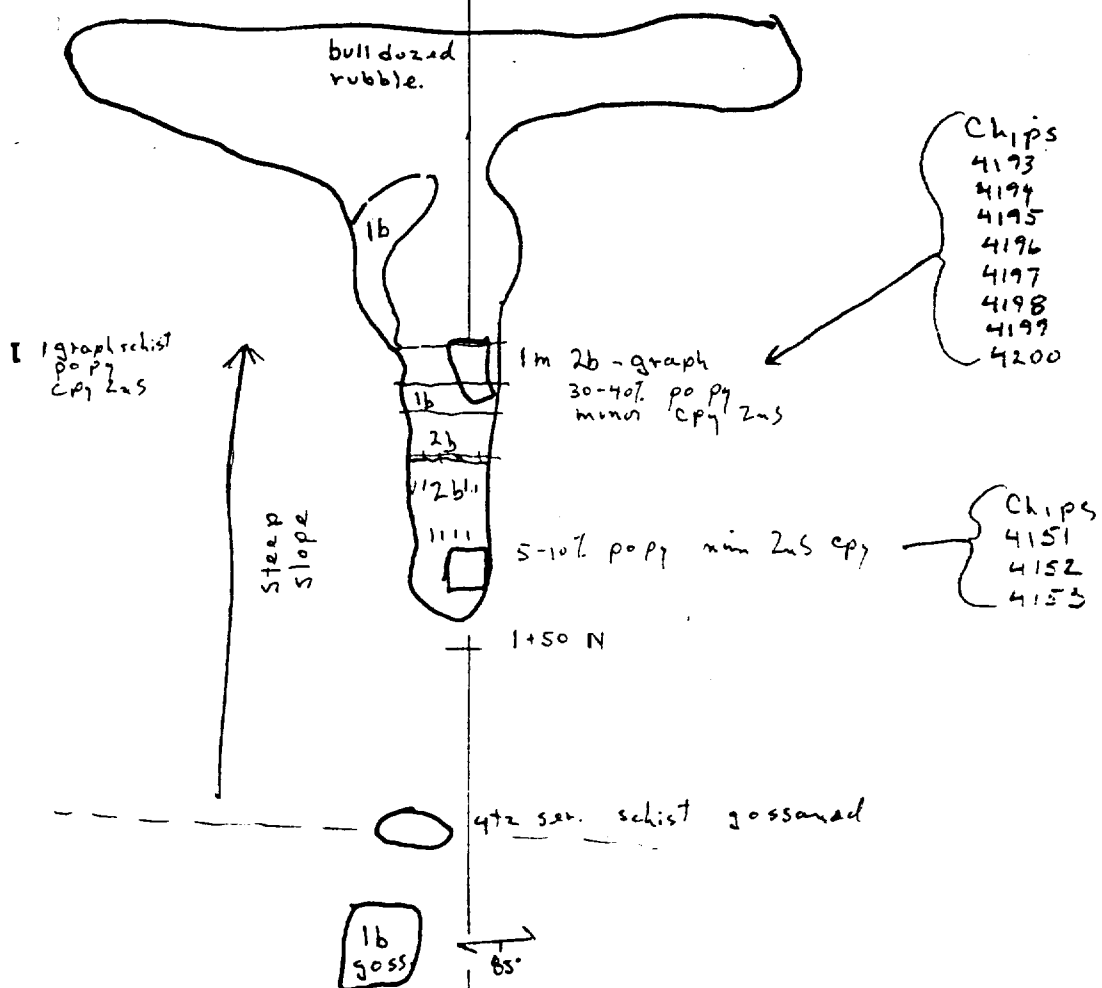 bulldozed
rubble.
Chips
4193
4194
4195
4196
4197
4198
4199
4200
1b
1 graph schist
po py
cpy ZnS
1m 2b - graph
30-40% po py
minor cpy ZnS
1b
2b
2b
Steep
Slope
5-10% po py min ZnS cpy
Chips
4151
4152
4153
1+50 N
qtz ser. schist gossaned
1b
goss.
85°